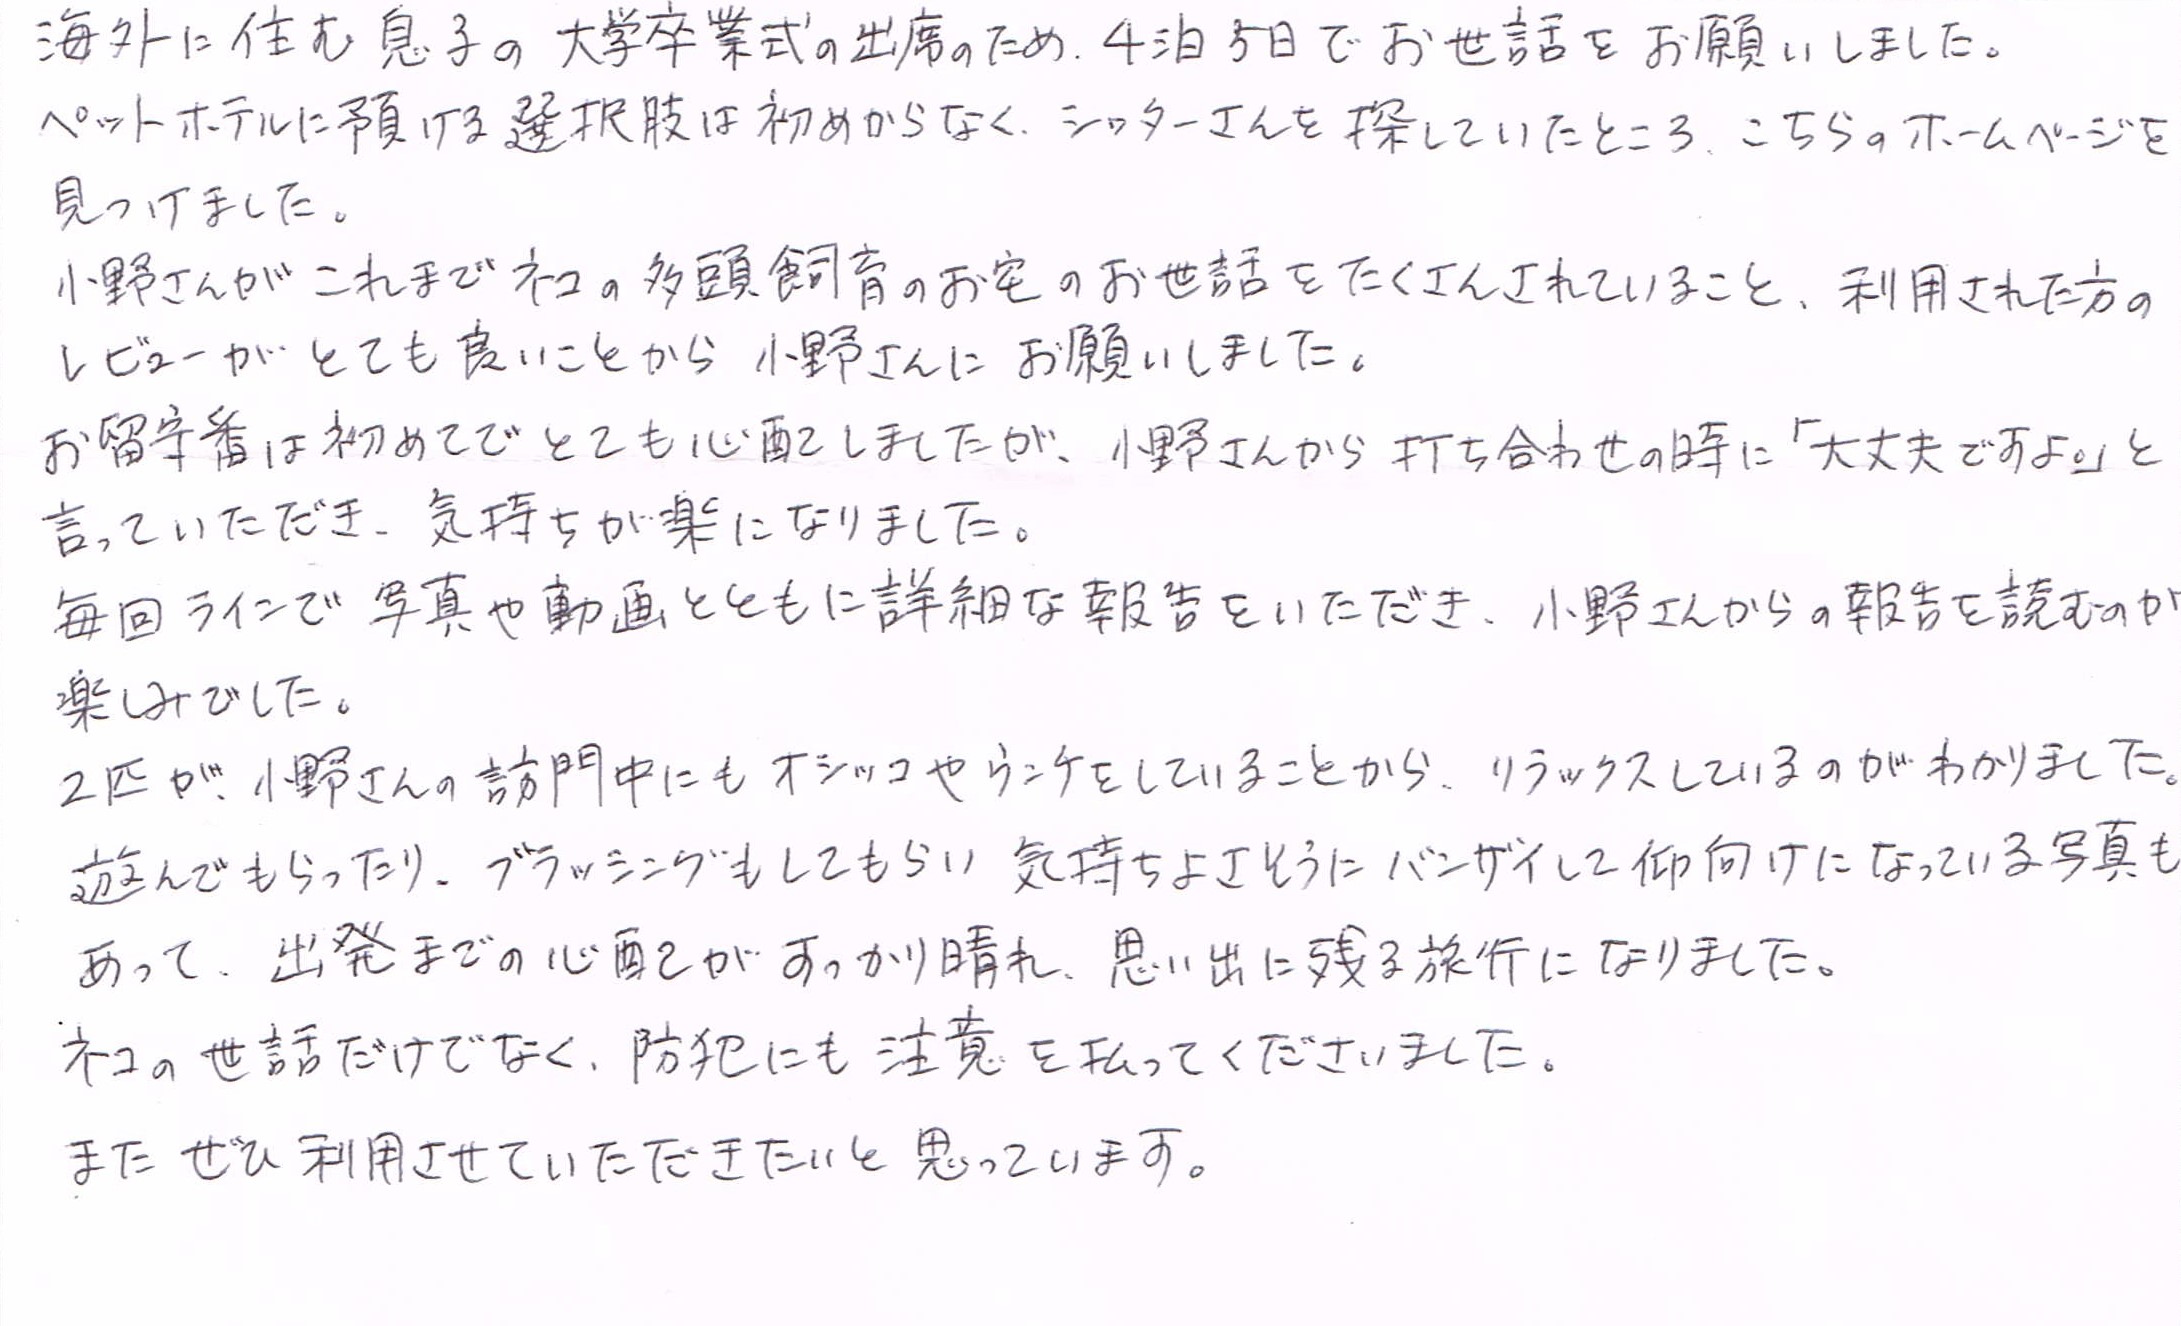 海外に住む息子の大学卒業式の出席のため、4泊5日でお世話をお願いしました。
ペットホテルに預ける選択肢は初めからなく、シッターさんを探していたところ、こちらのホームページを
見つけました。
小野さんがこれまでネコの多頭飼育のお宅のお世話をたくさんされていること、利用された方の
レビューがとても良いことから小野さんにお願いしました。
お留守番は初めてでとても心配しましたが、小野さんから打ち合わせの時に「大丈夫ですよ。」と
言っていただき、気持ちが楽になりました。
毎回ラインで写真や動画とともに詳細な報告をいただき、小野さんからの報告を読むのが
楽しみでした。
2匹が、小野さんの訪問中にもオシッコやウンケをしていることから、リラックスしているのがわかりました。
遊んでもらったり、ブラッシングもしてもらい気持ちよさそうにバンザイして仰向けになっている写真も
あって、出発までの心配がすっかり晴れ、思い出に残る旅行になりました。
ネコの世話だけでなく、防犯にも注意を払ってくださいました。
またぜひ利用させていただきたいと思っています。